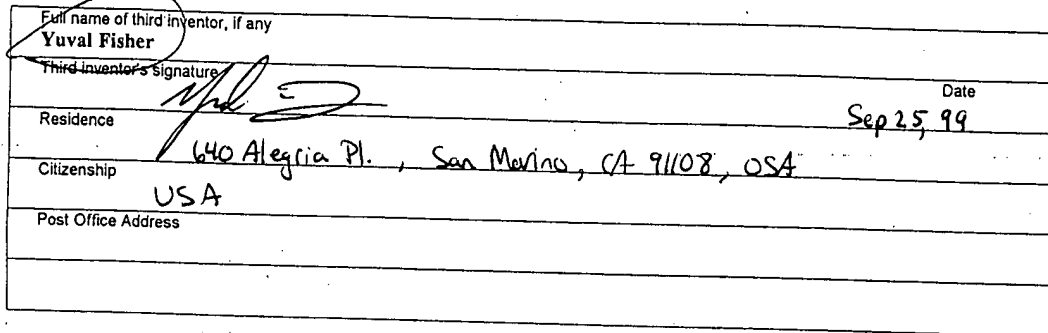 Full name of third inventor, if any
Yuval Fisher
Third inventor's signature
Date
Sep 25, 99
Residence
640 Alegria Pl., San Marino, CA 91108, USA
Citizenship
USA
Post Office Address